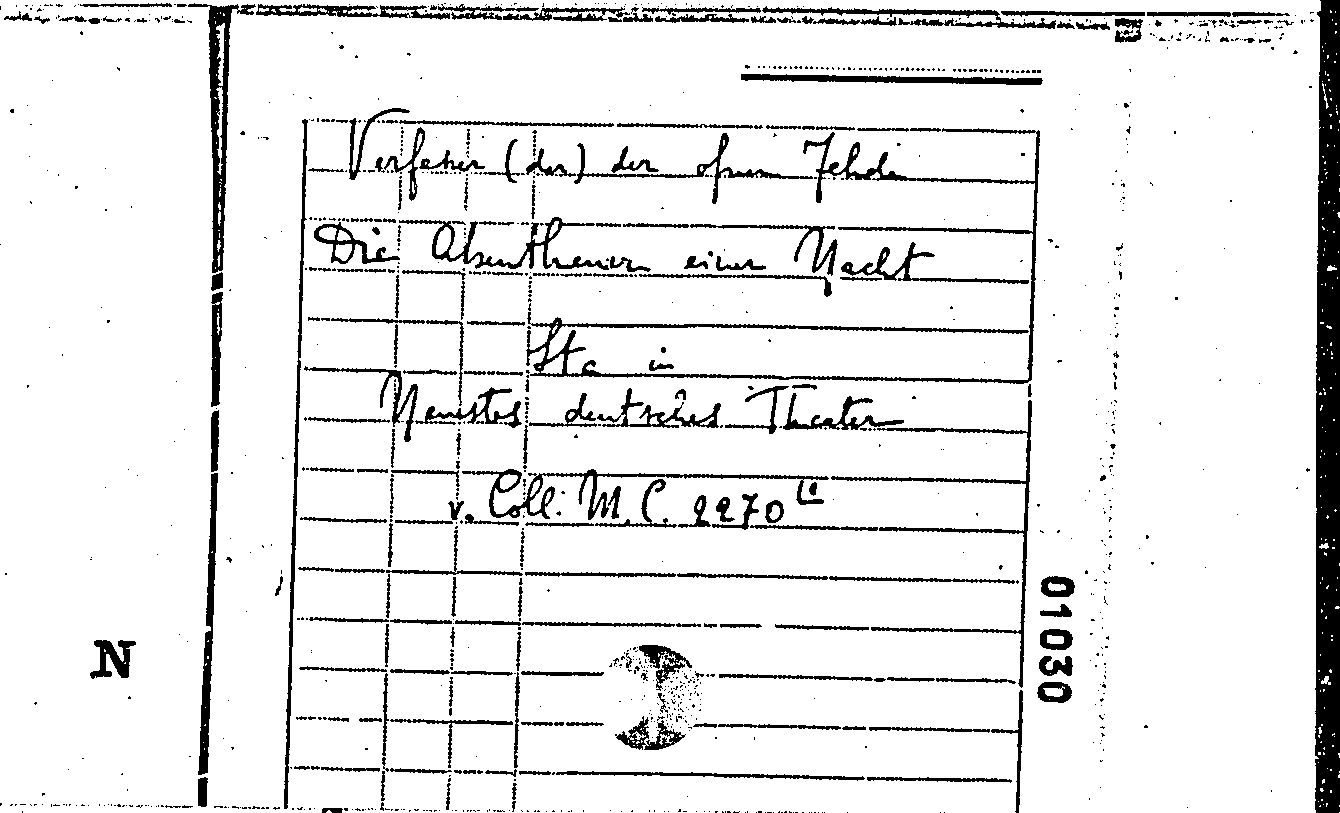 Verfasser (der) der offnen Fehde
Die Abentheuer einer Nacht
Sta in
Neustes deutsches Theater
v. Coll. M.C. 2270
01030
N